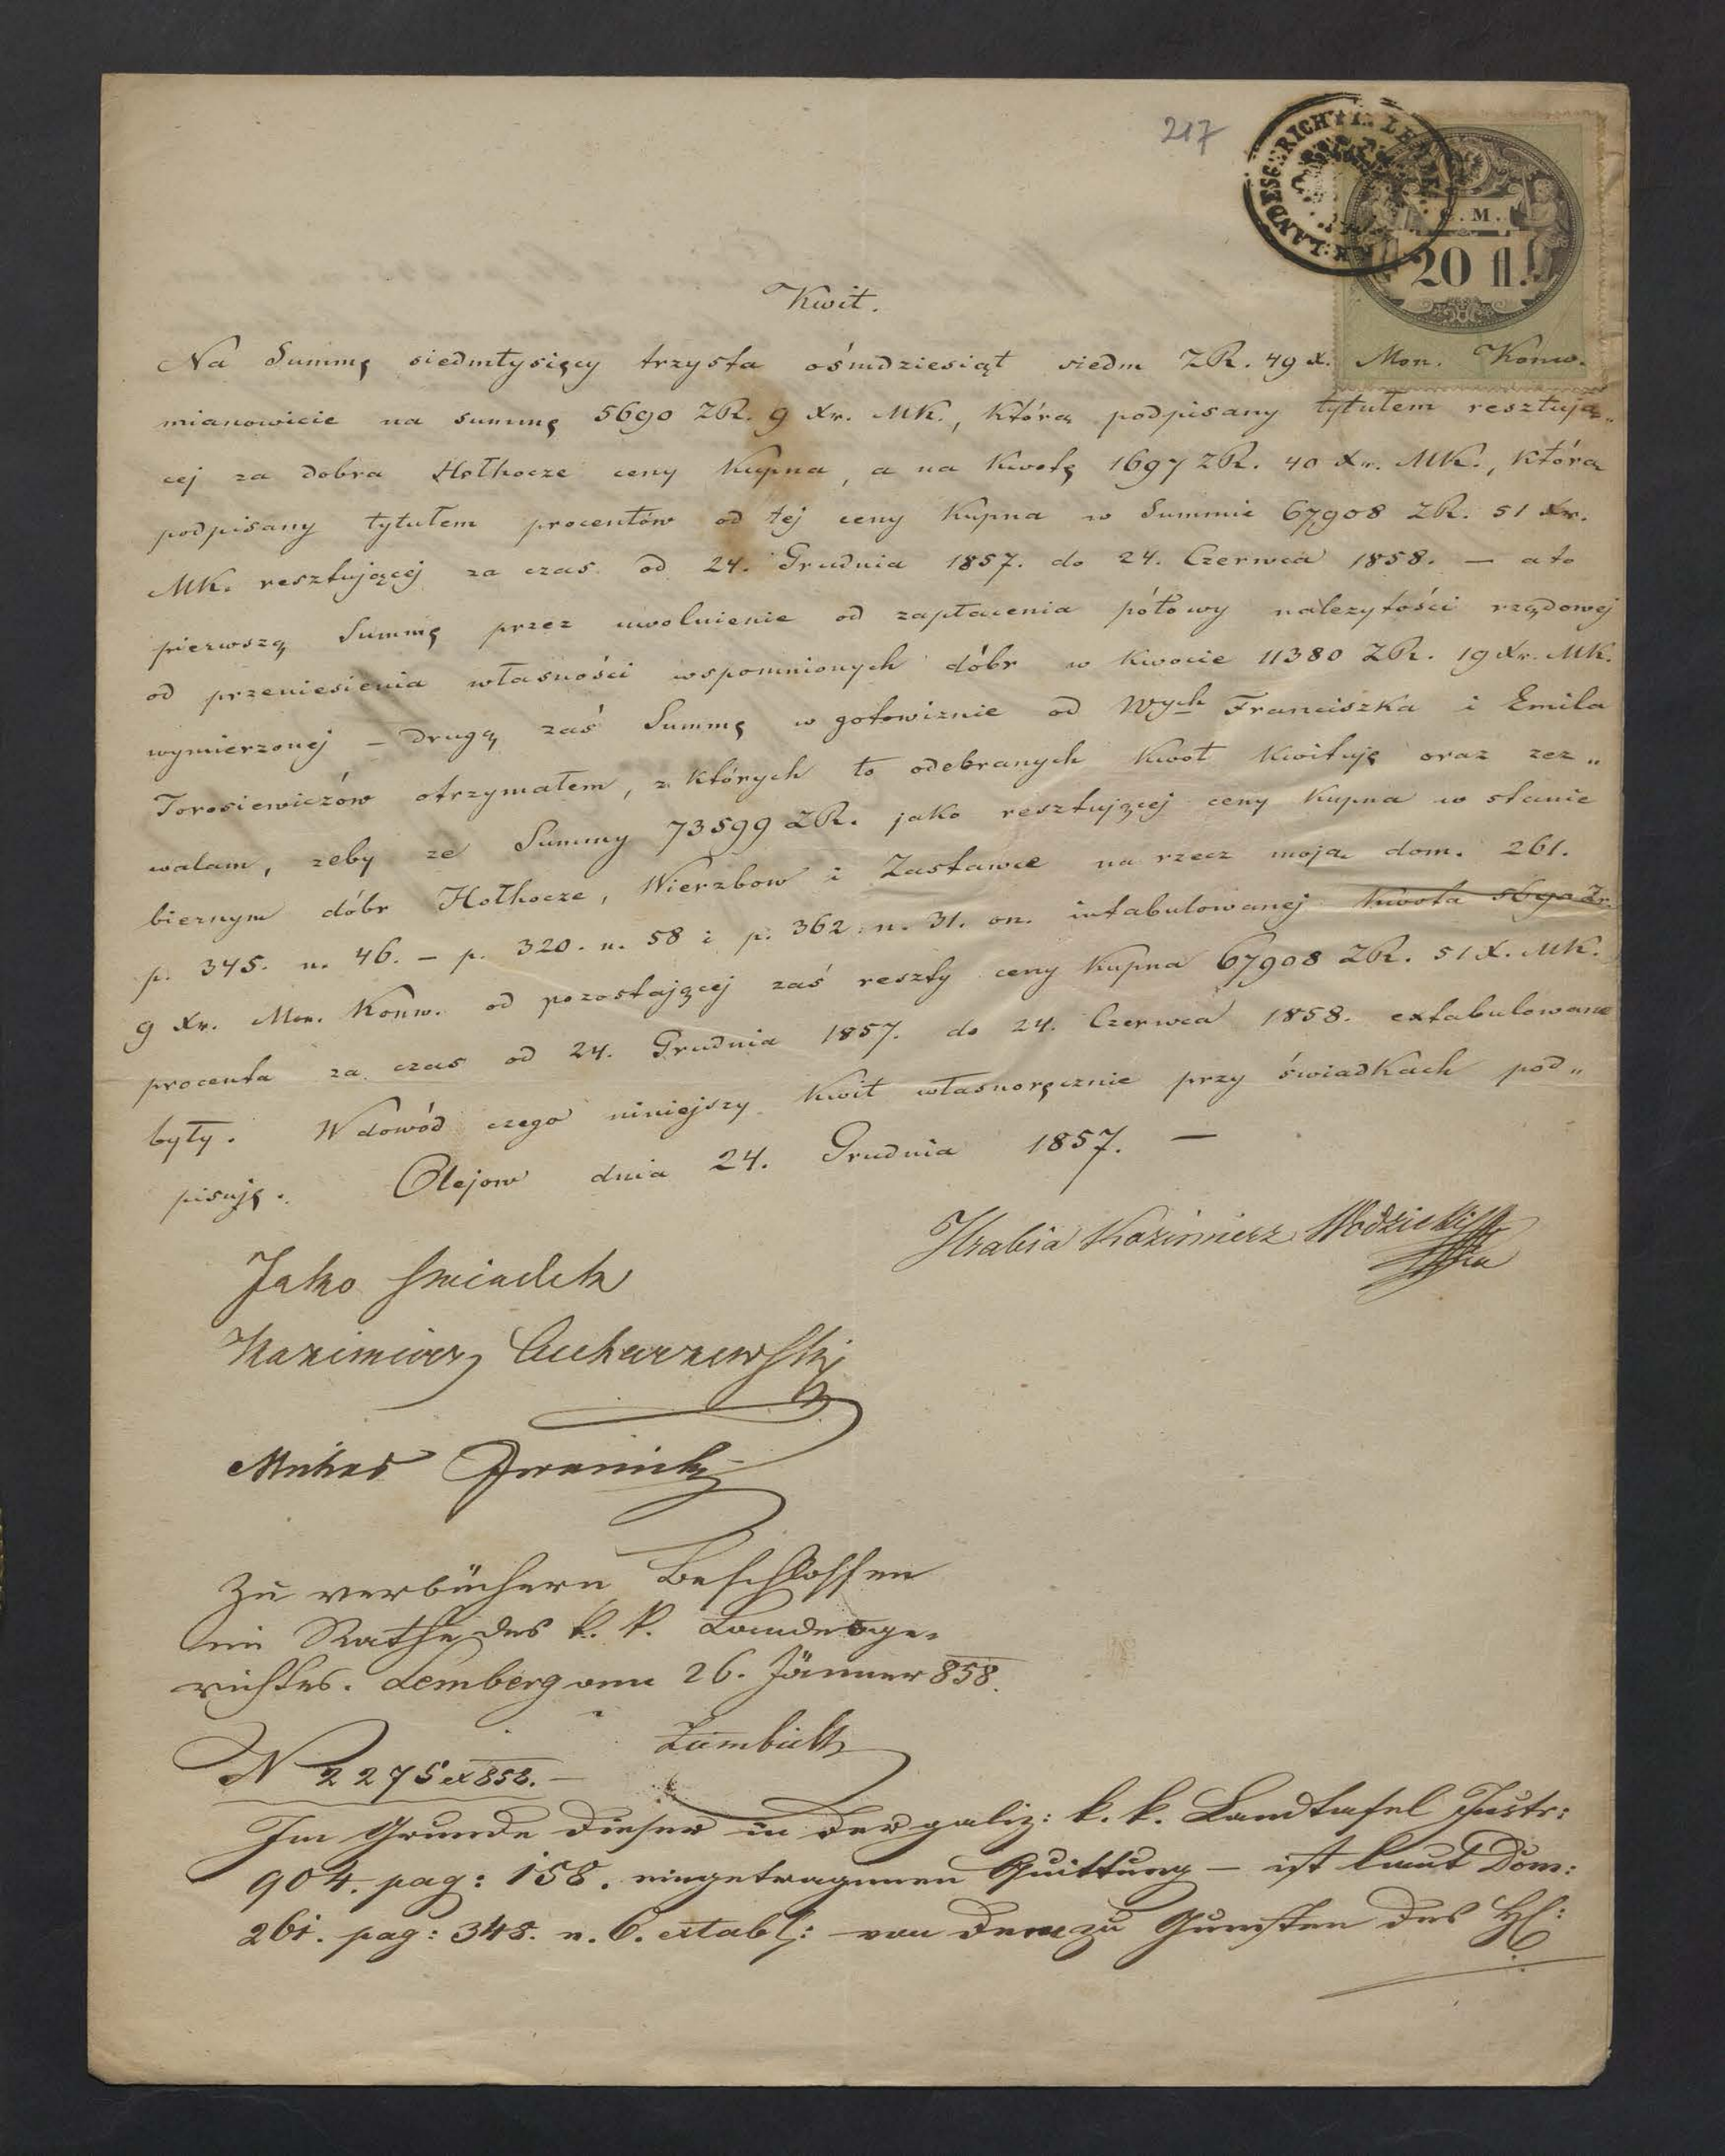 217
K.K. LANDESGERICHT IN LEMBERG
C. M.
20 fl.
Kwit.
Na Summę siedmtysięcy trzysta ośmdziesiąt siedm ZR. 49 X. Mon. Konw.
mianowicie na summę 5690 ZR. 9 Xr. MK., którą podpisany tytułem resztują„
cej za dobra Hołhocze ceny kupna, a na kwotę 1697 ZR. 40 Xr. MK., którą
podpisany tytułem procentów od tej ceny kupna w Summie 67,908 ZR. 51 Xr.
MK. resztującej za czas od 24. Grudnia 1857. do 24. Czerwca 1858. — a to
pierwszą Summę przez uwolnienie od zapłacenia półowy należytości rządowej
od przeniesienia własności wspomnionych dóbr w kwocie 11380 ZR. 19 Xr. MK.
wymierzonej — drugą zaś Summę w gotowiznie od Wych Franciszka i Emila
Torosiewiczów otrzymałem, z których to odebranych kwot kwituję oraz zez„
walam, żeby ze Summy 73599 ZR. jako resztującej ceny kupna w stanie
biernym dóbr Hołhocze, Wierzbow i Zastawce na rzecz moją dom. 261.
p. 345. n. 46. — p. 320. n. 58 i p. 362. n. 31. on. intabulowanej kwota 5690 Zr.
9 Xr. Mon. Konw. od pozostającej zaś reszty ceny kupna 67908 ZR. 51 X. MK.
procenta za czas od 24. Grudnia 1857. do 24. Czerwca 1858. extabulowane
były. W dowód czego niniejszy kwit własnoręcznie przy świadkach pod„
pisuję. Olejow dnia 24. Grudnia 1857. —
Hrabia Kazimierz Wodzicki
Jako swiadek
Kazimierz
Zu verbüchern Beschlossen
im Rathe des k. k. Landesge„
richtes. Lemberg am 26. Jänner 858.
N 2275 ex 858. —
Im Grunde dieser in der galiz: k. k. Landtafel Instr:
904. pag: 158. eingetragenen Quittung — ist laut Dom:
261. pag: 348. n. 6. extabl: von dem zu Gunsten des H: